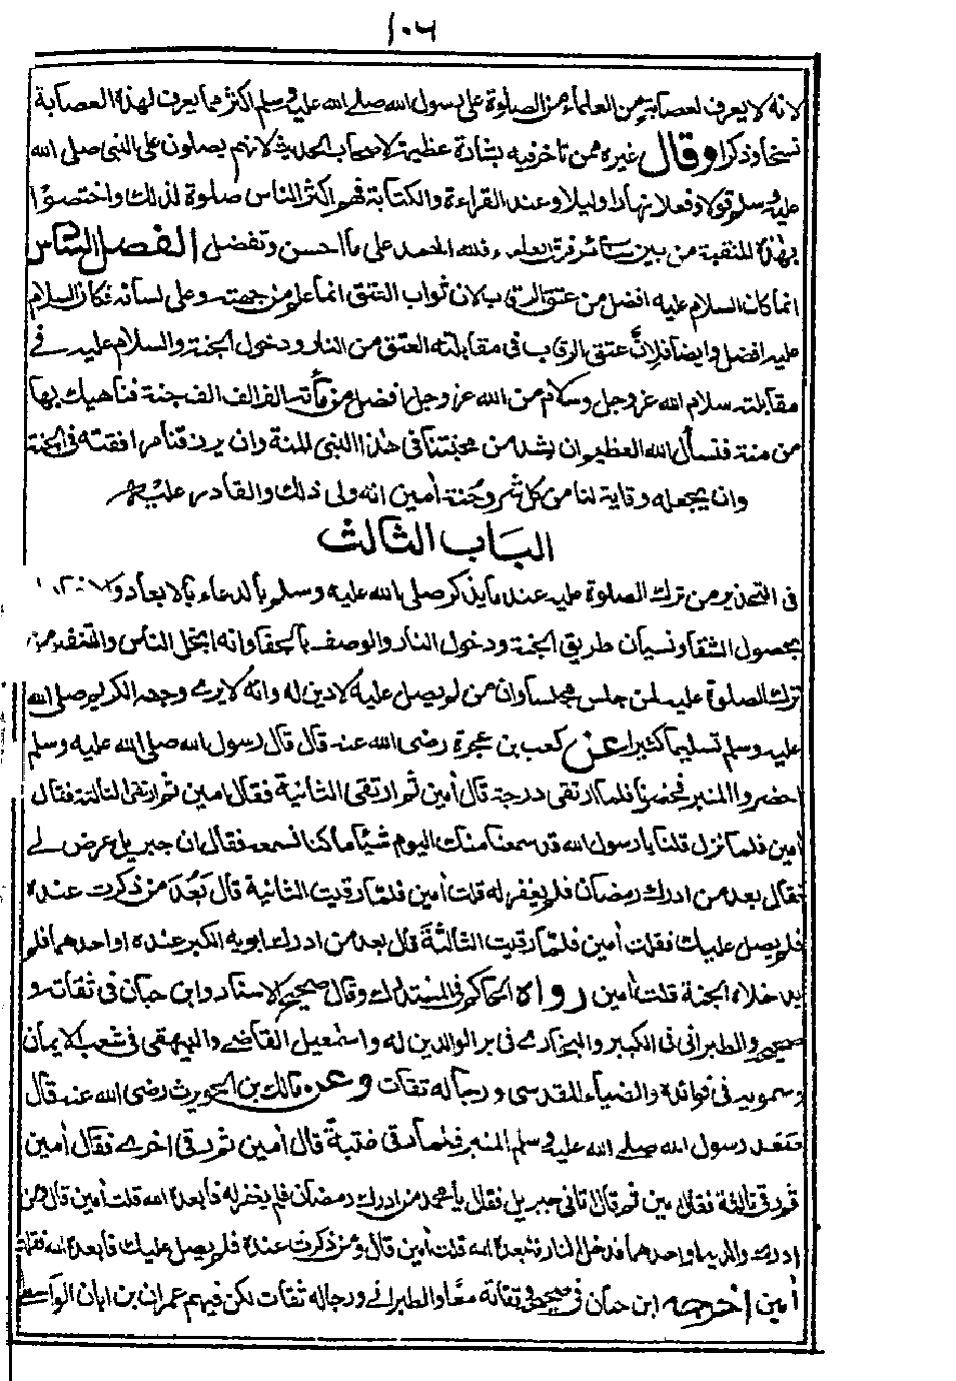 ١٠٦
لانه لا يعرف لعصابة من العلماء من الصلوة على رسول الله صلے الله عليه وسلم اكثر مما يعرف لهذه العصابة
نسخا وذكرا وقال غيره ممن تاخر فيه بشارة عظيمة لاصحاب الحديث لانهم يصلون على النبى صلى الله
عليه وسلم قولا وفعلا نهارا وليلا وعند القراءة والكتابة فهم اكثر الناس صلوة لذلك واختصوا
بهذه المنقبة من بين سائر فرق العلماء فلله الحمد على ما احسن وتفضل الفصل
انما كان السلام عليه افضل من عتق الرقاب لان ثواب العتق انما علم من جهته وعلى لسانه فكان السلام
عليه افضل وايضا فلان عتق الرقاب فى مقابلته العتق من النار ودخول الجنة والسلام عليه فے
مقابلته سلام الله عز وجل وسلام من الله عز وجل افضل من مأئة الف الف الف جنة فناهيك بها
من منة فنسأل الله العظيم ان يشد من محبتنا فى هذا النبى المنة وان يرزقنا مرافقته فى الجنة
وان يجعله وقاية لنا من كل شر وجنة أمين انه ولى ذلك والقادر عليه
الباب الثالث
فى التحذير من ترك الصلوة عليه عند ما يذكر صلى الله عليه وسلم بالدعاء بالابعاد
بحصول الشقاء ونسيان طريق الجنة ودخول النار والوصف بالجفاء وانه ابخل الناس والتنفير من
ترك الصلوة عليه لمن جلس مجلسا وان من لم يصل عليه لا دين له وانه لا يرے وجهه الكريم صلى الله
عليه وسلم تسليما كثيرا عن كعب بن عجرة رضى الله عنه قال قال رسول الله صلى الله عليه وسلم
احضروا المنبر فحضرنا فلما ارتقى درجة قال أمين ثم ارتقى الثانية فقال أمين ثم ارتقى الثالثة فقال
أمين فلما نزل قلنا يا رسول الله قد سمعنا منك اليوم شيئا ما كنا نسمعه فقال ان جبريل عرض لے
فقال بعد من ادرك رمضان فلم يغفر له قلت أمين فلما رقيت الثانية قال بَعُدَ من ذكرت عنده
فلم يصل عليك فقلت أمين فلما رقيت الثالثة قال بعد من ادرك ابويه الكبر عنده او احدهما فلم
يدخلاه الجنة قلت أمين رواه الحاكم فى المستدرك وقال صحيح الاسناد وابن حبان فى ثقاته و
صحيحه والطبرانى فى الكبير والبخارے فى بر الوالدين له واسمعيل القاضے والبيهقى فى شعب الايمان
وسمويه فى فوائده والضياء المقدسى ورجاله ثقات وعن مالك بن الحويرث رضى الله عنه قال
صعد رسول الله صلے الله عليه وسلم المنبر فلما رقى عتبة قال أمين ثم رقى اخرے فقال أمين
ثم رقى ثالثة فقال أمين ثم قال اتانى جبريل فقال يا محمد من ادرك رمضان فلم يغفر له فأبعده الله قلت أمين قال ومن
ادرك والديه او احدهما فدخل النار فأبعده الله قلت أمين قال ومن ذكرت عنده فلم يصل عليك فأبعده الله فقلت
أمين اخرجه ابن حبان فى صحيحه وثقاته معًا والطبرانے ورجاله ثقات لكن فيهم عمران بن ابان الواسطے